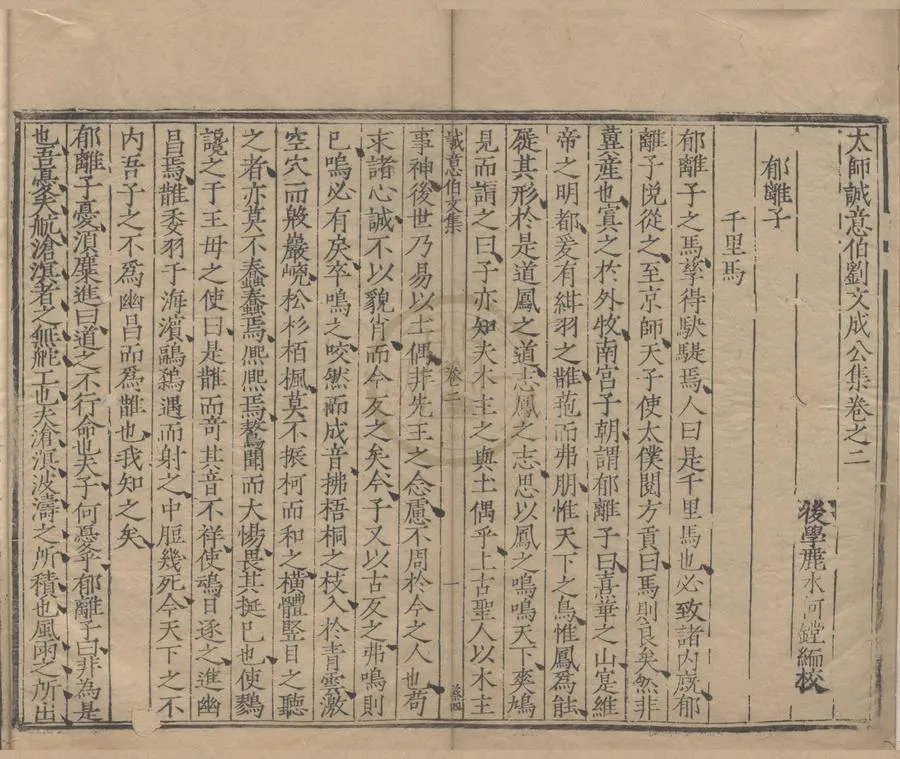 太師誠意伯劉文成公集卷之二
後學麗水何鏜編校
郁離子
千里馬
郁離子之馬孳得駃騠焉人曰是千里馬也必致諸內廐郁
離子悅從之至京師天子使太僕閱方貢曰馬則良矣然非
冀產也寘之於外牧南宮子朝謂郁離子曰熹華之山寔維
帝之明都爰有紺羽之鵲菢而弗朋惟天下之鳥惟鳳爲能
屣其形於是道鳳之道志鳳之志思以鳳之鳴鳴天下奭鳩
見而謂之曰子亦知夫木主之與土偶乎上古聖人以木主
誠意伯文集 卷二 一
事神後世乃易以土偶非先王之念慮不周於今之人也苟
求諸心誠不以貌肖而今反之矣今子又以古反之弗鳴則
已鳴必有戾卒鳴之咬然而成音拂梧桐之枝入於青雲激
空穴而殷巖嶢松杉栢楓莫不振柯而和之橫體豎目之聽
之者亦莫不蠢蠢焉熈熈焉驁聞而大惕畏其挻已也使鷚
讒之于王母之使曰是鵲而奇其音不祥使䳃日逐之進幽
昌焉鵲委羽于海濱鷊鶂遇而射之中脰幾死今天下之不
內吾子之不爲幽昌而爲鵲也我知之矣
郁離子憂須麋進曰道之不行命也夫子何憂乎郁離子曰非為是
也吾憂夫航滄溟者之無舵工也夫滄溟波濤之所積也風雨之所出